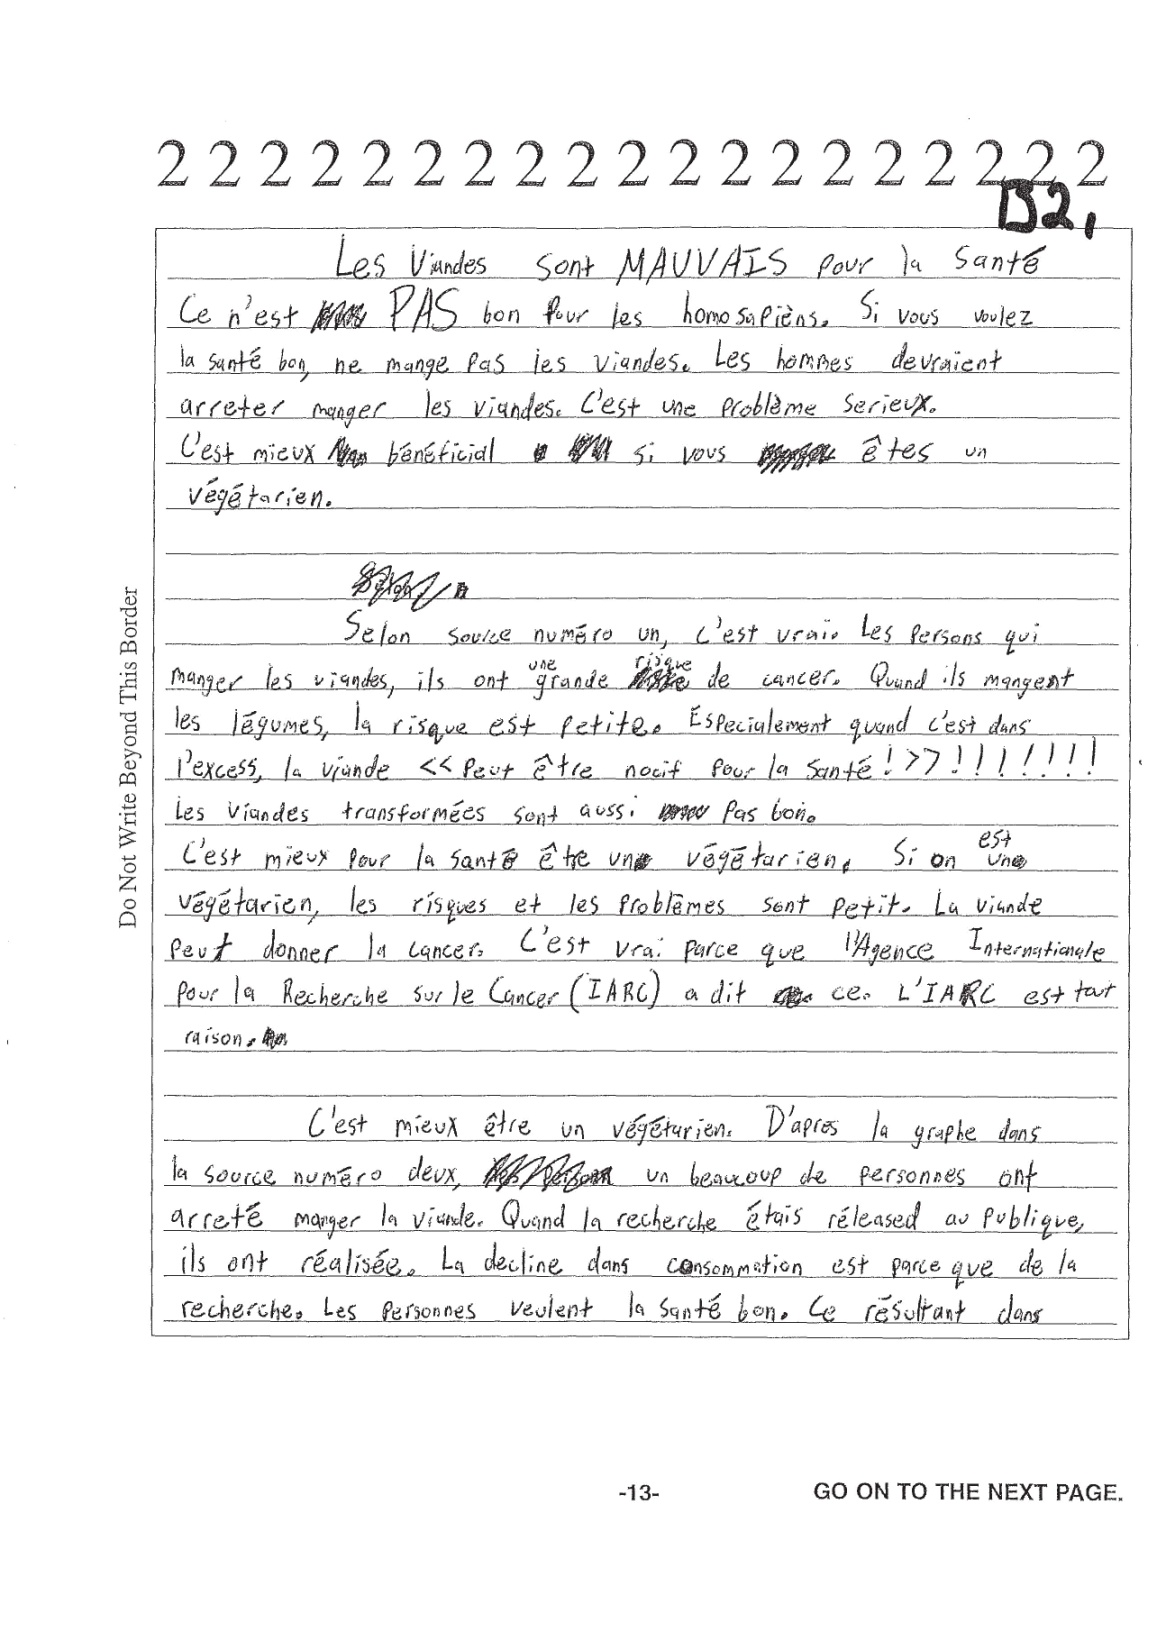 2 2 2 2 2 2 2 2 2 2 2 2 2 2 2 2 2 2 2
B2,
Les Viandes sont MAUVAIS pour la santé
Ce n'est PAS bon pour les homosapièns. Si vous voulez
la santé bon, ne mange pas les viandes. Les hommes devraient
arreter manger les viandes. C'est une problème serieux.
C'est mieux bénéficial si vous êtes un
végétarien.
Selon source numéro un, c'est vrai. Les persons qui
manger les viandes, ils ont une grande risque de cancer. Quand ils mangent
les légumes, la risque est petite. Especialement quand c'est dans
l'excess, la viande << peut être nocif pour la santé! >> ! ! ! ! ! ! !
Les viandes transformées sont aussi pas bon.
C'est mieux pour la santé être un végétarien. Si on est un
végétarien, les risques et les problèmes sont petit. La viande
peut donner la cancer. C'est vrai parce que l'Agence Internationale
pour la Recherche sur le Cancer (IARC) a dit ce. L'IARC est tout
raison.
C'est mieux être un végétarien. D'après la graphe dans
la source numéro deux, un beaucoup de personnes ont
arreté manger la viande. Quand la recherche étais réleased au publique,
ils ont réalisée. La decline dans consommation est parce que de la
recherche. Les personnes veulent la santé bon. Ce résultant dans
Do Not Write Beyond This Border
-13-
GO ON TO THE NEXT PAGE.